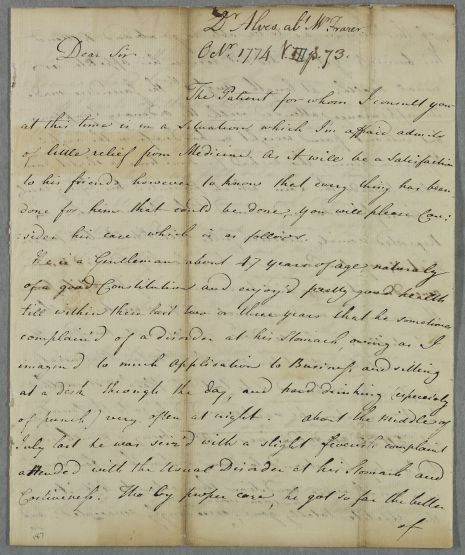 Dr Alves, abt Mr Frazer.
Octr. 1774 VIII p. 73.
Dear Sir
The Patient for whom I consult you
at this time is in a Situation which I'm affraid admits
of little relief from Medicine. As it will be a Satisfaction
to his friends however to know that every thing has been
done for him that could be done, you will please Con:
:sider his case which is as follows.
He is a Gentleman about 47 years of age, naturaly
of a good Constitution and enjoy'd pretty good health
till within these last two or three years that he sometimes
complained of a disorder at his Stomach owing as I
imagin'd to much Application to Business, and sitting
at a desk through the day, and hard drinking (especialy
of punch) very often at night. about the middle of
July last he was seiz'd with a slight feverish complaint
attended with the Usual Disorder at his Stomach and
Costiveness. Tho' by proper care, he got so far the better
of